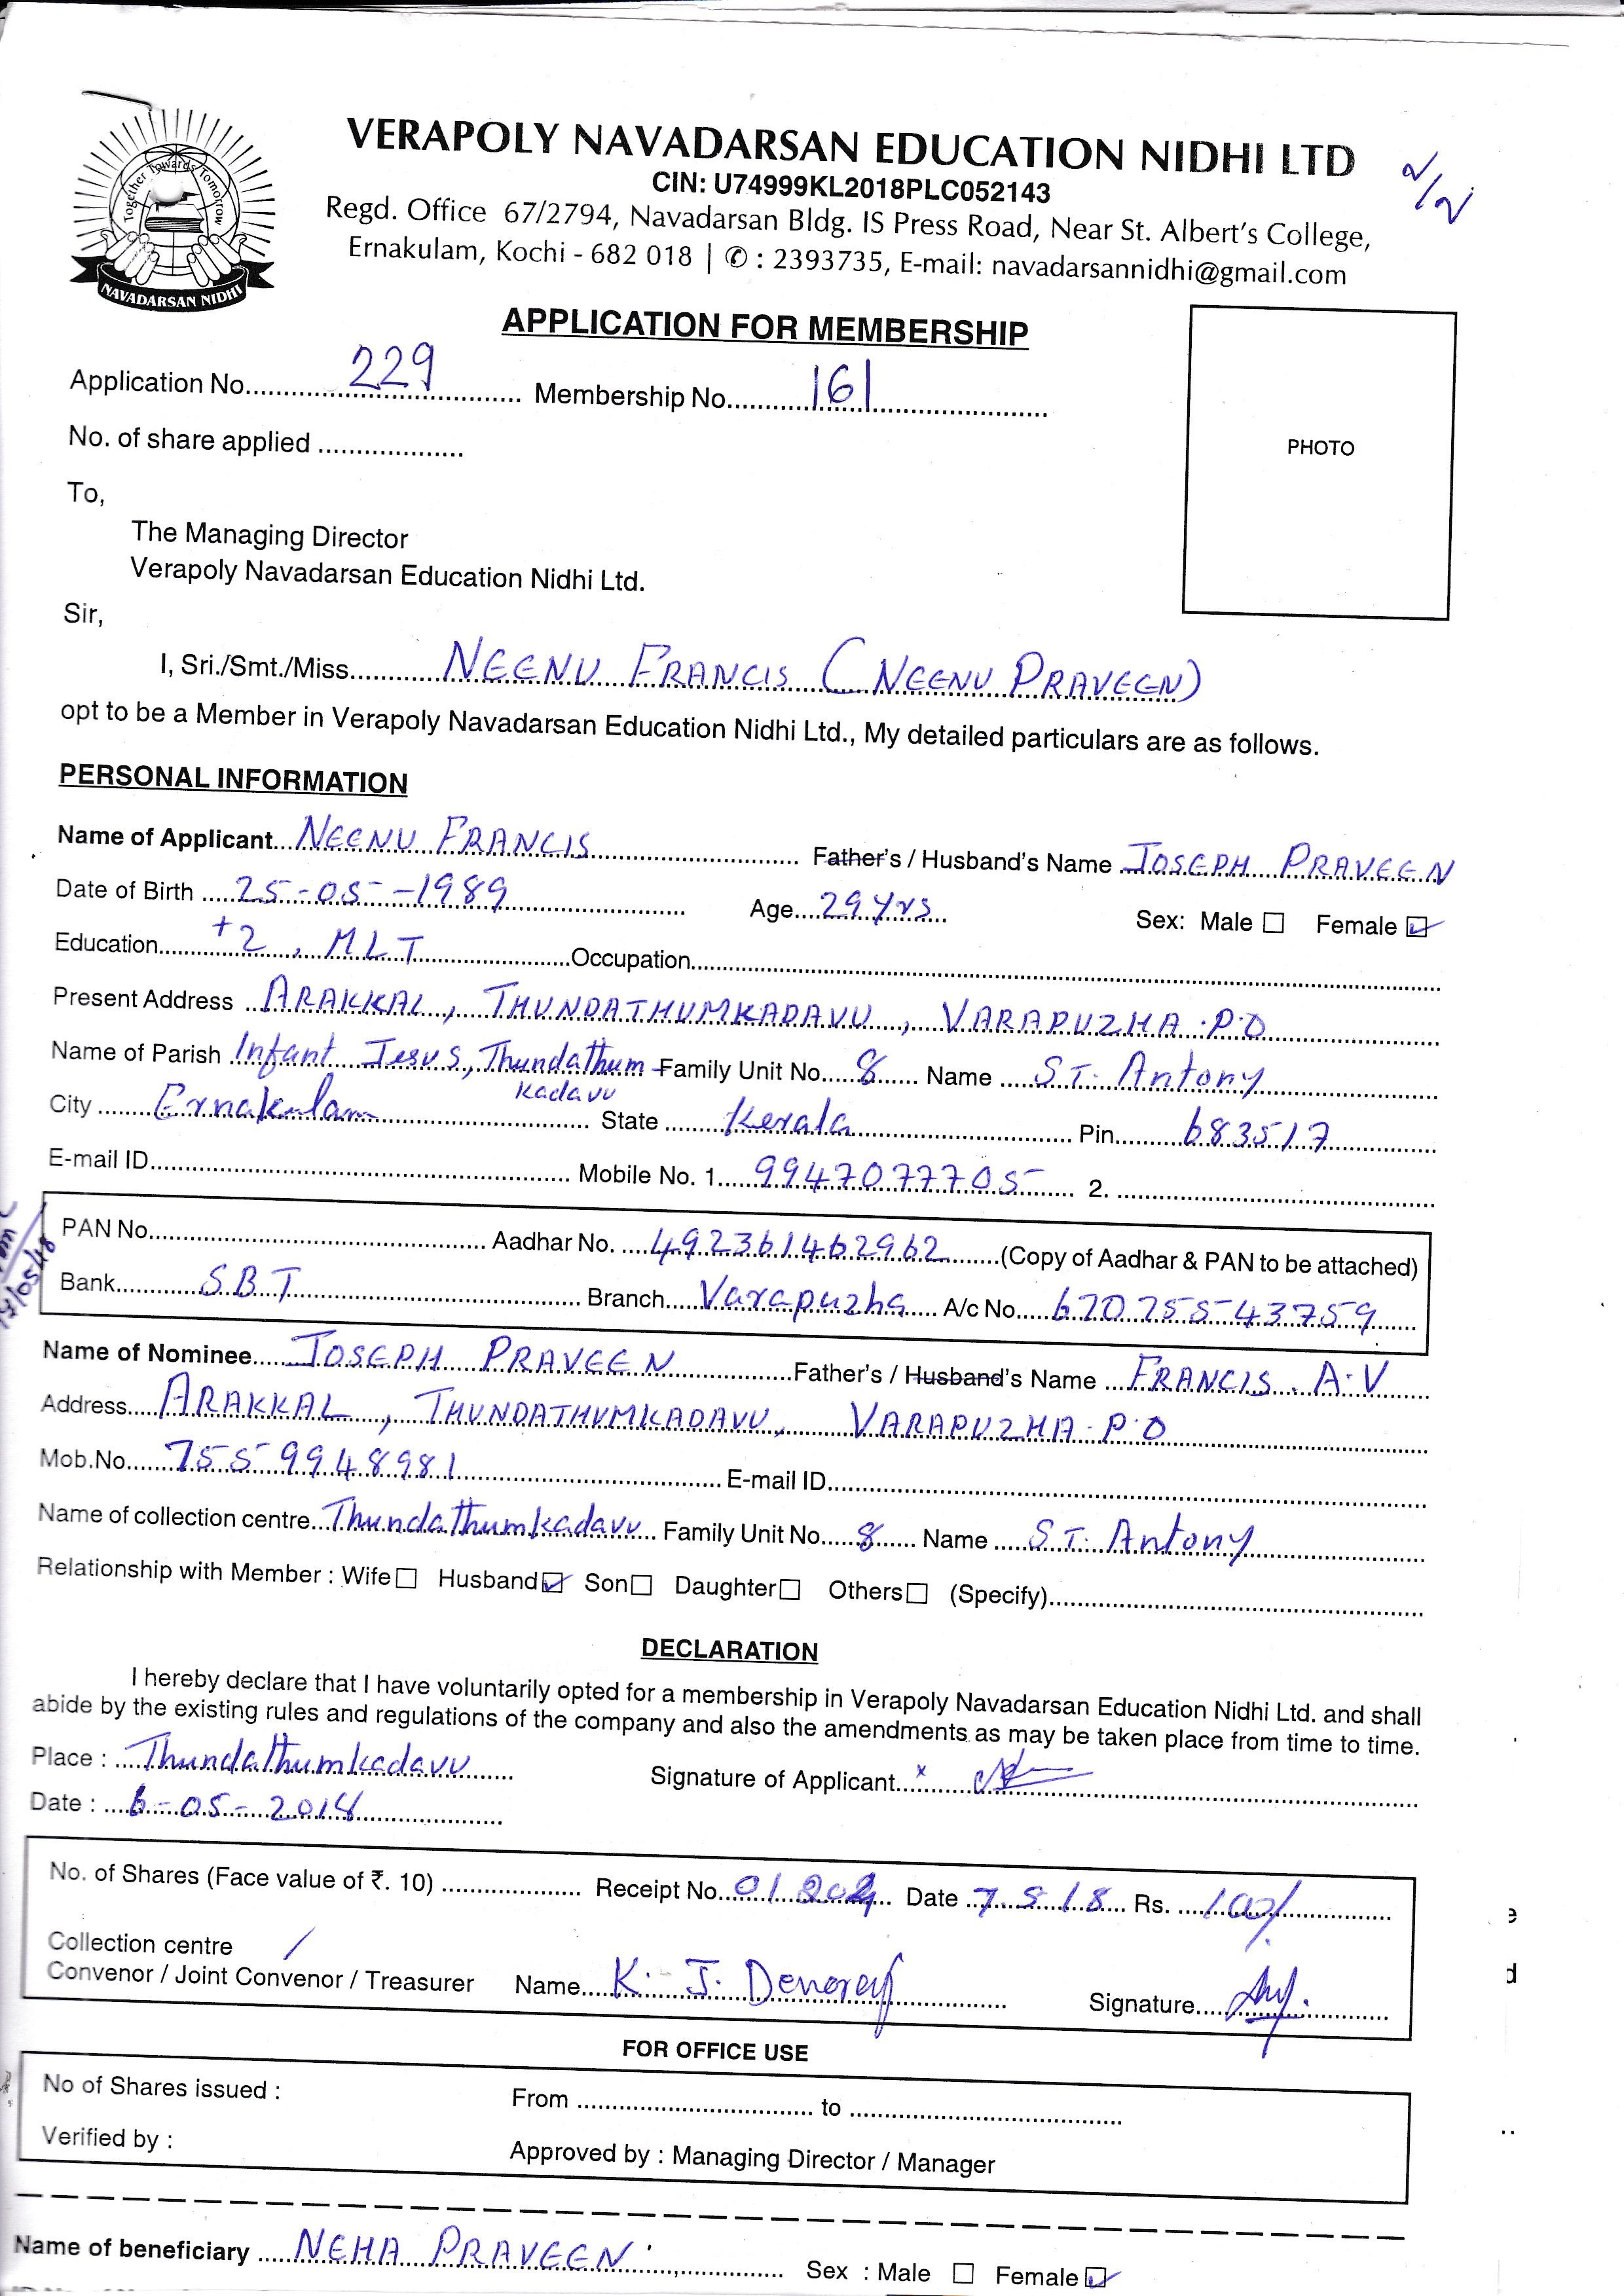 VERAPOLY NAVADARSAN EDUCATION NIDHI LTD
CIN: U74999KL2018PLC052143
Regd. Office 67/2794, Navadarsan Bldg. IS Press Road, Near St. Albert's College,
Ernakulam, Kochi - 682 018 | ✆ : 2393735, E-mail: navadarsannidhi@gmail.com
Together Towards Tomorrow
NAVADARSAN NIDHI
APPLICATION FOR MEMBERSHIP
Application No. 229 Membership No. 161
No. of share applied
PHOTO
To,
The Managing Director
Verapoly Navadarsan Education Nidhi Ltd.
Sir,
I, Sri./Smt./Miss NEENU FRANCIS (NEENU PRAVEEN)
opt to be a Member in Verapoly Navadarsan Education Nidhi Ltd., My detailed particulars are as follows.
PERSONAL INFORMATION
Name of Applicant NEENU FRANCIS Father's / Husband's Name JOSEPH PRAVEEN
Date of Birth 25-05-1989 Age 29 yrs Sex: Male ☐ Female ☑
Education +2, MLT Occupation
Present Address ARAKKAL, THUNDATHUMKADAVU, VARAPUZHA.P.O
Name of Parish Infant Jesus, Thundathum Family Unit No. 8 Name ST. Antony
kadavu
City Ernakulam State Kerala Pin 683517
E-mail ID Mobile No. 1. 9947077705 2.
PAN No. Aadhar No. 492361462962 (Copy of Aadhar & PAN to be attached)
Bank SBT Branch Varapuzha A/c No. 67075543759
Name of Nominee JOSEPH PRAVEEN Father's / Husband's Name FRANCIS. A.V
Address ARAKKAL, THUNDATHUMKADAVU, VARAPUZHA.P.O
Mob.No. 7559948981 E-mail ID
Name of collection centre Thundathumkadavu Family Unit No. 8 Name ST. Antony
Relationship with Member : Wife ☐ Husband ☑ Son ☐ Daughter ☐ Others ☐ (Specify)
DECLARATION
I hereby declare that I have voluntarily opted for a membership in Verapoly Navadarsan Education Nidhi Ltd. and shall
abide by the existing rules and regulations of the company and also the amendments as may be taken place from time to time.
Place : Thundathumkadavu Signature of Applicant x
Date : 6-05-2018
No. of Shares (Face value of ₹. 10) Receipt No. Date 7.5.18 Rs. 100/
Collection centre
Convenor / Joint Convenor / Treasurer Name K. J. Signature
FOR OFFICE USE
No of Shares issued : From to
Verified by : Approved by : Managing Director / Manager
Name of beneficiary NEHA PRAVEEN Sex : Male ☐ Female ☑